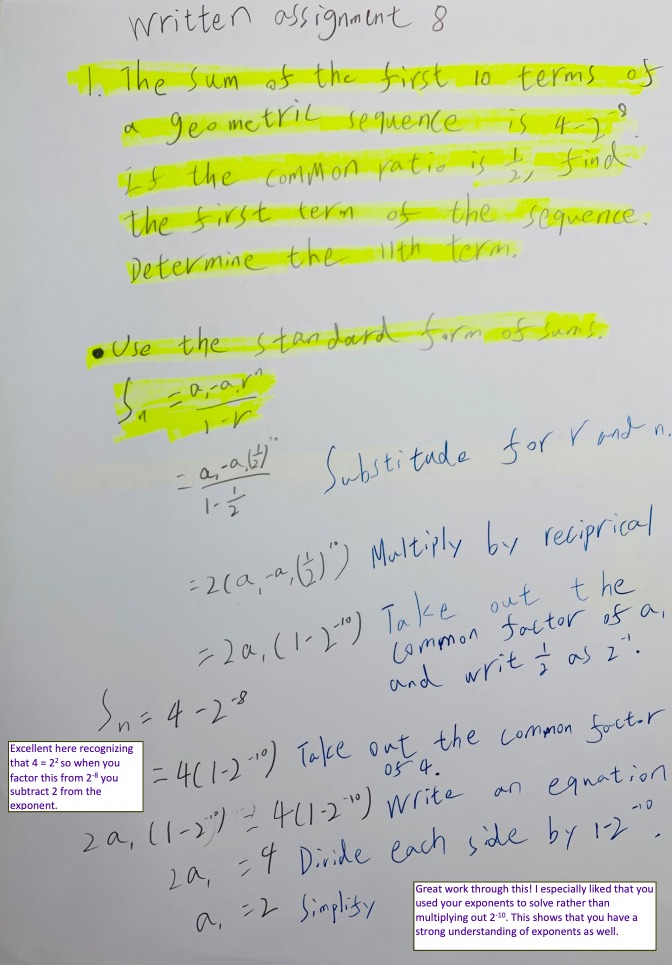 Written assignment 8
1. The sum of the first 10 terms of
a geometric sequence is 4-2⁻⁸
If the common ratio is 1/2, find
the first term of the sequence.
Determine the 11th term.
• Use the standard form of sums.
Sₙ = (a₁-a₁rⁿ)/(1-r)
= (a₁-a₁(1/2)¹⁰)/(1-1/2) Substitude for r and n.
= 2(a₁-a₁(1/2)¹⁰) Multiply by reciprical
= 2a₁(1-2⁻¹⁰) Take out the
common factor of a₁
and writ 1/2 as 2⁻¹.
Sₙ = 4-2⁻⁸
= 4(1-2⁻¹⁰) Take out the common factor
of 4.
Excellent here recognizing
that 4 = 2² so when you
factor this from 2⁻⁸ you
subtract 2 from the
exponent.
2a₁(1-2⁻¹⁰) = 4(1-2⁻¹⁰) Write an equation
2a₁ = 4 Divide each side by 1-2⁻¹⁰.
a₁ = 2 Simplify
Great work through this! I especially liked that you
used your exponents to solve rather than
multiplying out 2⁻¹⁰. This shows that you have a
strong understanding of exponents as well.